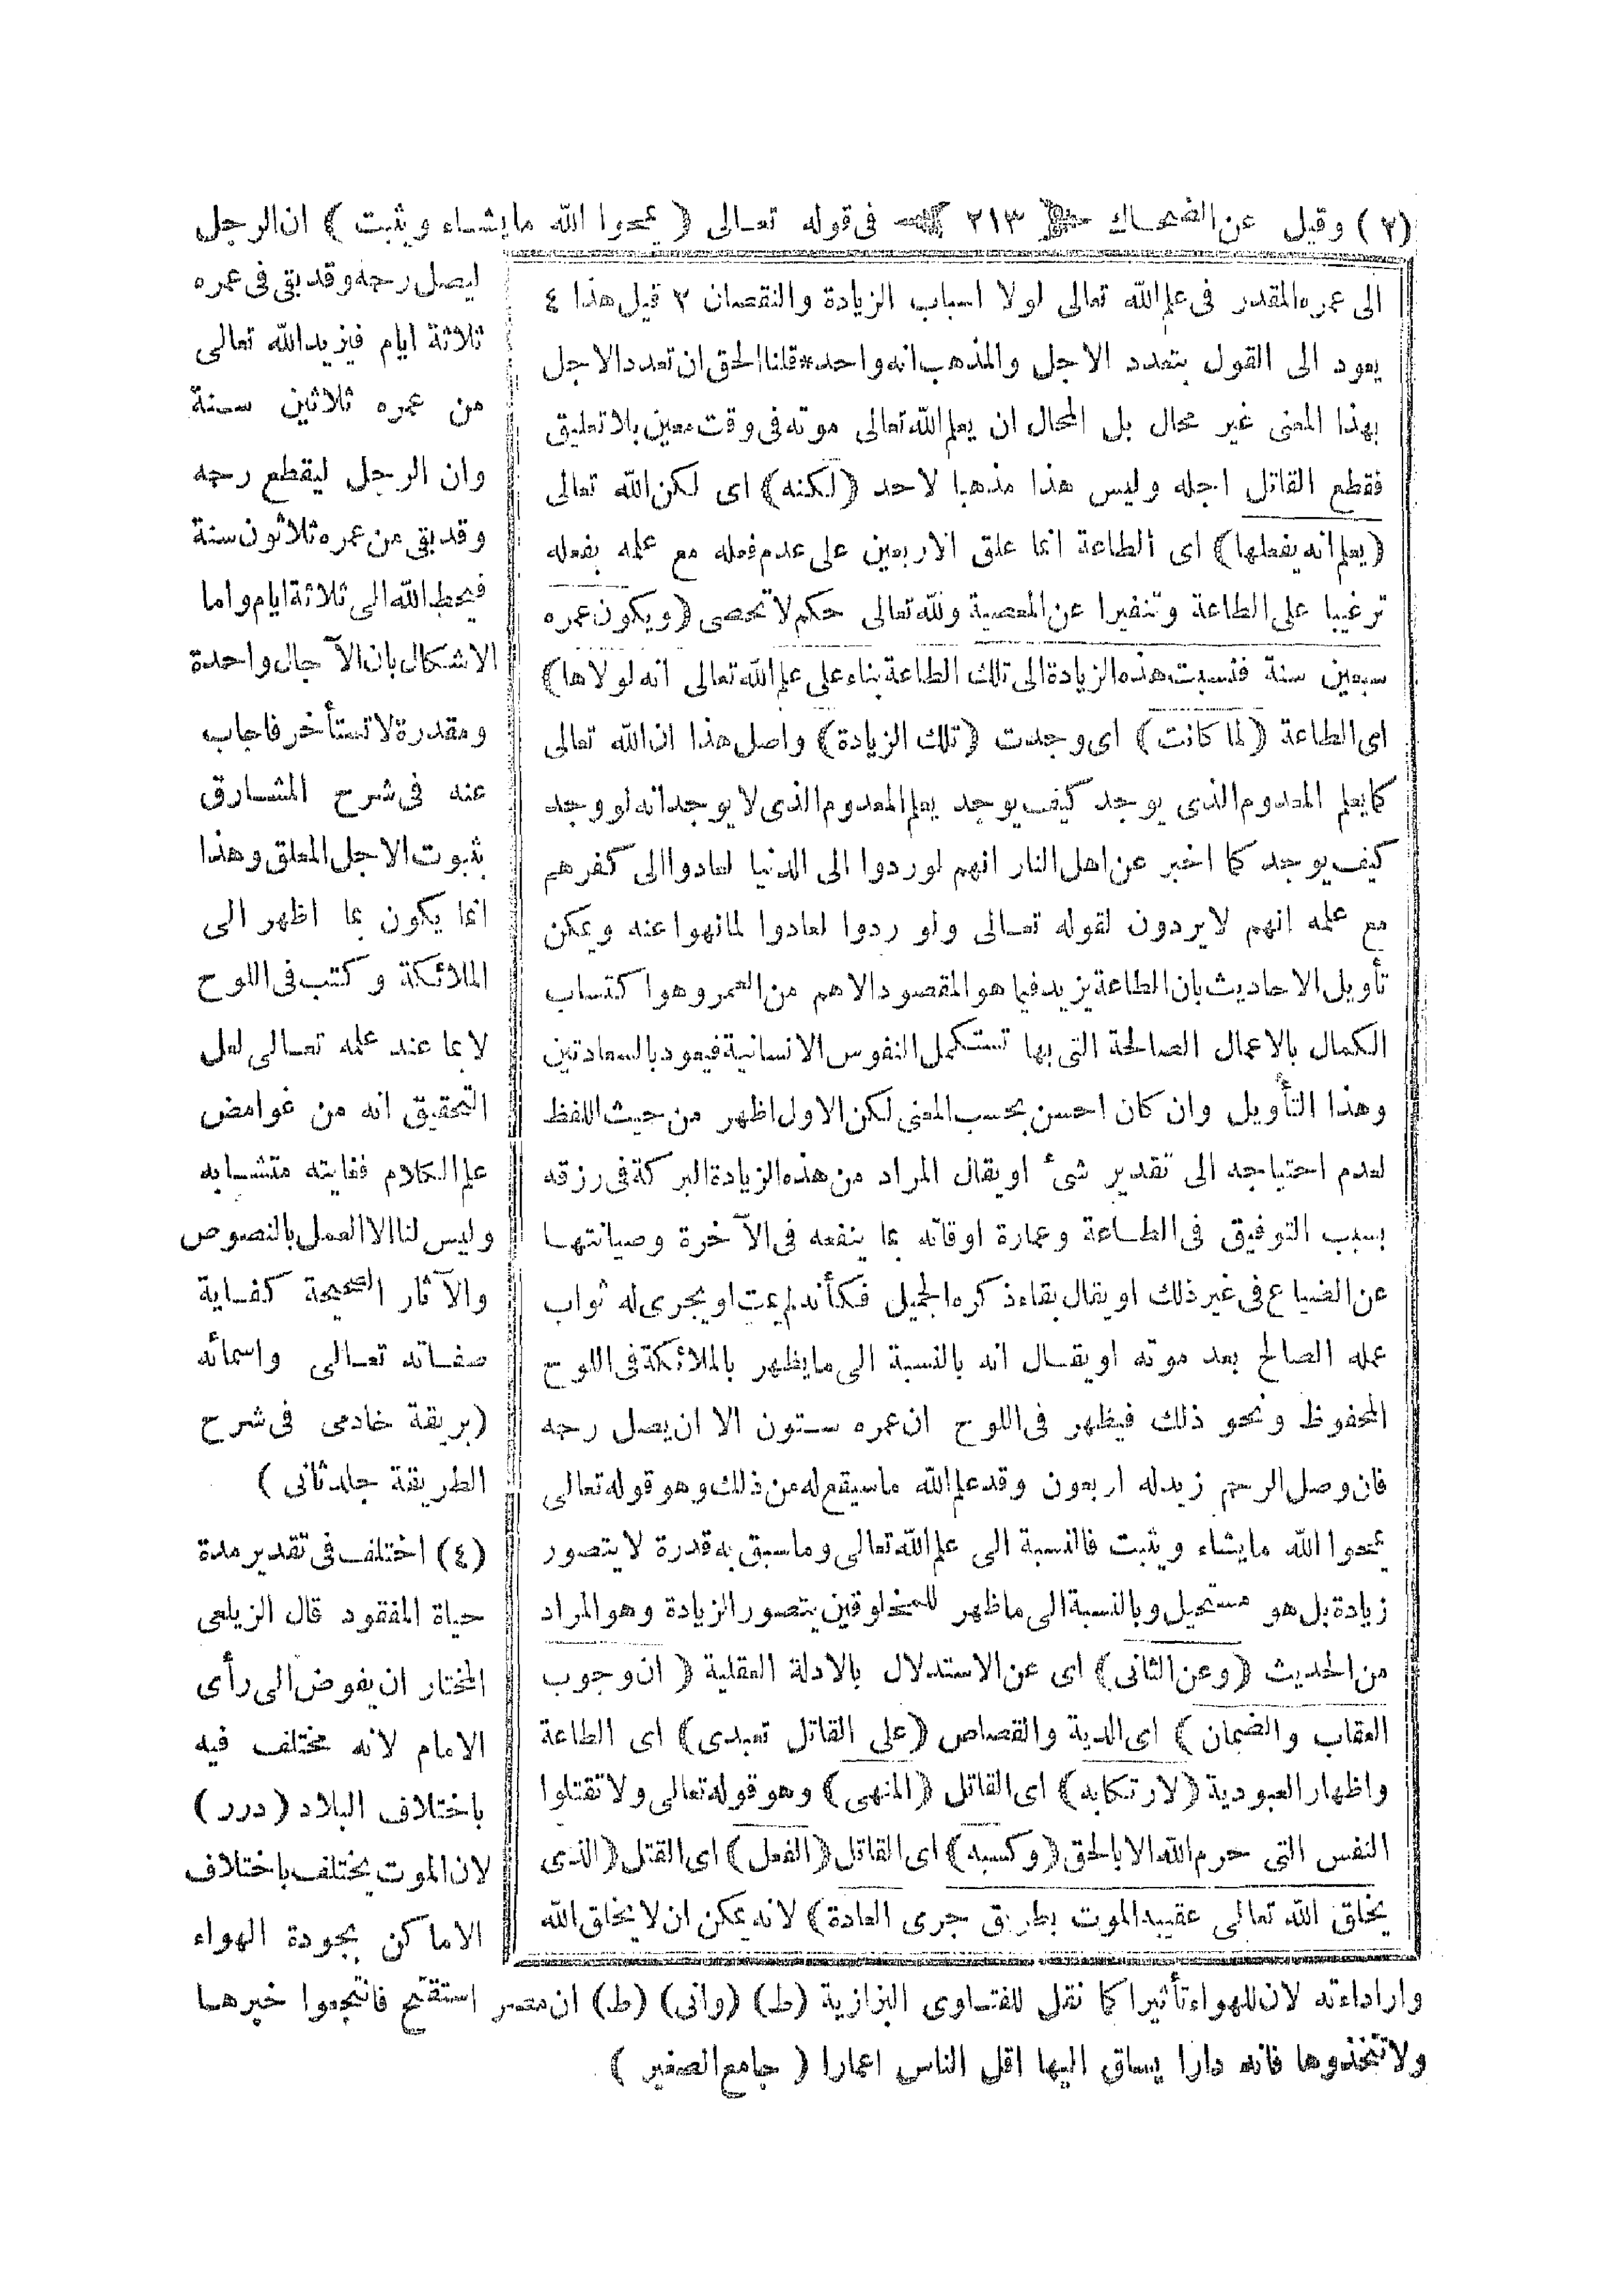 (٢) وقيل عن الضحاك ٢١٣ فى قوله تعالى ( يمحوا الله ما يشاء ويثبت ) ان الرجل
ليصل رحمه وقد بقى فى عمره
ثلاثة ايام فيزيد الله تعالى
من عمره ثلاثين سنة
وان الرجل ليقطع رحمه
وقد بقى من عمره ثلاثون سنة
فيحط الله الى ثلاثة ايام واما
الاشكال بان الآجال واحدة
ومقدرة لا تستأخر فاجاب
عنه فى شرح المشارق
بثبوت الاجل المعلق وهذا
انما يكون بما اظهر الى
الملائكة وكتب فى اللوح
لا بما عند علمه تعالى لعل
التحقيق انه من غوامض
علم الكلام فغايته متشابه
وليس لنا الا العمل بالنصوص
والآثار الصحيحة كفاية
صفاته تعالى واسمائه
(بريقة خادمى فى شرح
الطريقة جلد ثانى )
(٤) اختلف فى تقدير مدة
حياة المفقود قال الزيلعى
المختار ان يفوض الى رأى
الامام لانه مختلف فيه
باختلاف البلاد ( درر )
لان الموت يختلف باختلاف
الاماكن بجودة الهواء
الى عمره المقدر فى علم الله تعالى لو لا اسباب الزيادة والنقصان ٢ قيل هذا ٤
يعود الى القول بتعدد الاجل والمذهب انه واحد * قلنا الحق ان تعدد الاجل
بهذا المعنى غير محال بل المحال ان يعلم الله تعالى موته فى وقت معين بلا تعليق
فقطع القاتل اجله وليس هذا مذهبا لاحد (لكنه) اى لكن الله تعالى
(يعلم انه يفعلها) اى الطاعة انما علق الاربعين على عدم فعله مع علمه بفعله
ترغيبا على الطاعة وتنفيرا عن المعصية ولله تعالى حكم لا تحصى (ويكون عمره
سبعين سنة فنسبت هذه الزيادة الى تلك الطاعة بناء على علم الله تعالى انه لو لاها)
اى الطاعة (لما كانت) اى وجدت (تلك الزيادة) واصل هذا ان الله تعالى
كما يعلم المعدوم الذى يوجد كيف يوجد يعلم المعدوم الذى لا يوجد انه لو وجد
كيف يوجد كما اخبر عن اهل النار انهم لو ردوا الى الدنيا لعادوا الى كفرهم
مع علمه انهم لا يردون لقوله تعالى ولو ردوا لعادوا لما نهوا عنه ويمكن
تأويل الاحاديث بان الطاعة يزيد فيما هو المقصود الاهم من العمر وهو اكتساب
الكمال بالاعمال الصالحة التى بها تستكمل النفوس الانسانية فيعود بالسعادتين
وهذا التأويل وان كان احسن بحسب المعنى لكن الاول اظهر من حيث اللفظ
لعدم احتياجه الى تقدير شئ او يقال المراد من هذه الزيادة البركة فى رزقه
بسبب التوفيق فى الطاعة وعمارة اوقاته بما ينفعه فى الآخرة وصيانتها
عن الضياع فى غير ذلك او يقال بقاء ذكره الجميل فكأنه لم يمت او يجرى له ثواب
عمله الصالح بعد موته او يقال انه بالنسبة الى ما يظهر بالملائكة فى اللوح
المحفوظ ونحو ذلك فيظهر فى اللوح ان عمره ستون الا ان يصل رحمه
فان وصل الرحم زيد له اربعون وقد علم الله ما سيقع له من ذلك وهو قوله تعالى
يمحوا الله ما يشاء ويثبت فالنسبة الى علم الله تعالى وما سبق به قدرة لا يتصور
زيادة بل هو مستحيل وبالنسبة الى ما ظهر للمخلوقين يتصور الزيادة وهو المراد
من الحديث (وعن الثانى) اى عن الاستدلال بالادلة العقلية (ان وجوب
العقاب والضمان) اى الدية والقصاص (على القاتل تعبدى) اى الطاعة
واظهار العبودية (لارتكابه) اى القاتل (المنهى) وهو قوله تعالى ولا تقتلوا
النفس التى حرم الله الا بالحق (وكسبه) اى القاتل (الفعل) اى القتل (الذى
يخلق الله تعالى عقيبه الموت بطريق جرى العادة) لانه يمكن ان لا يخلق الله
واراداءته لان للهواء تأثيرا كما نقل للفتاوى البزازية (ط) (وانى) (ط) ان مصر استفتح فانتجعوا خيرها
ولا تتخذوها فانه دارا يساق اليها اقل الناس اعمارا ( جامع الصغير )